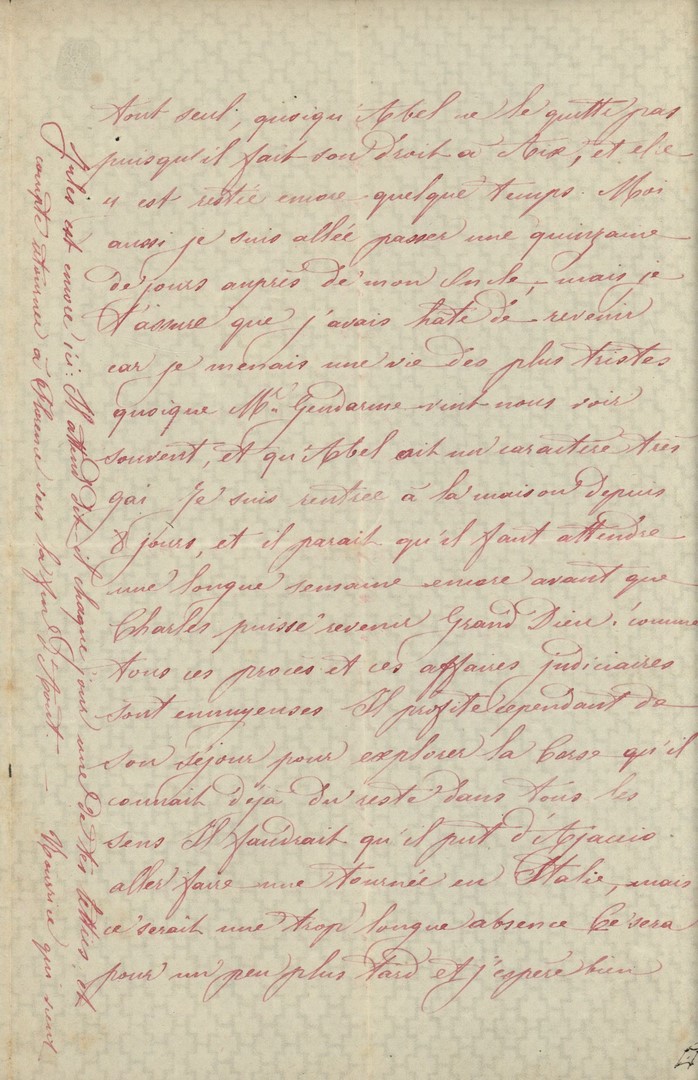 tout seul, quoiqu'Abel ne le quitte pas
puisqu'il fait son droit à Aix, et elle
y est restée encore quelque temps. Moi
aussi je suis allée passer une quinzaine
de jours auprès de mon Oncle, mais je
t'assure que j'avais hâte de revenir
car je menais une vie des plus tristes
quoique Mr. Gendarme vint nous voir
souvent, et qu'Abel ait un caractère très
gai Je suis rentrée à la maison depuis
8 jours, et il parait qu'il faut attendre
une longue semaine encore avant que
Charles puisse revenir Grand Dieu! comme
tous ces procès et ces affaires judiciaires
sont ennuyeuses Il profite cependant de
son séjour pour explorer la Corse qu'il
connait déjà du reste dans tous les
sens Il faudrait qu'il put d'Ajaccio
aller faire une tournée en Italie, mais
ce serait une trop longue absence Ce sera
pour un peu plus tard et j'espère bien
Jules est encore ici: Il attend dit-il chaque jour une de tes lettres, et
compte retourner à Florence vers la fin d'Août — Nourrice qui vient